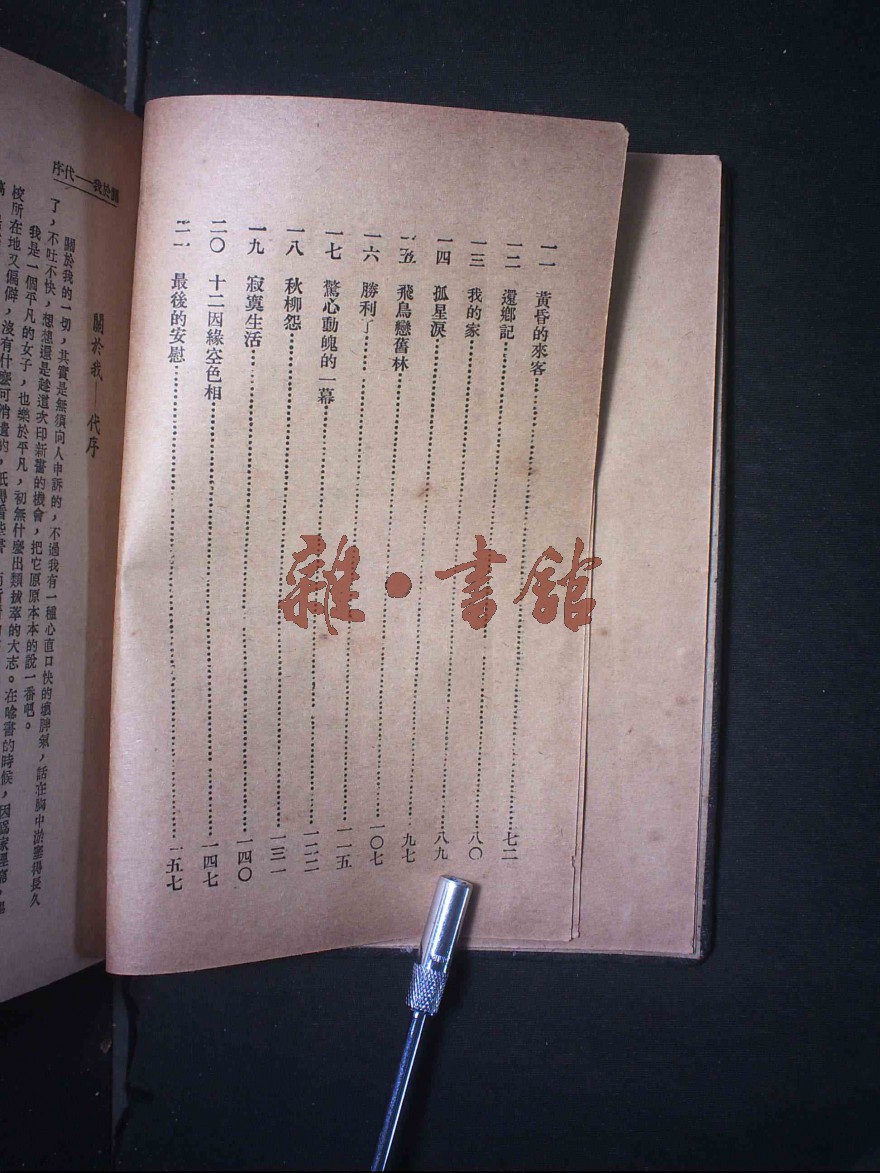 一一 黃昏的來客……七二
一二 還鄉記……八〇
一三 我的家……八九
一四 孤星淚……九七
一五 飛鳥戀舊林……一〇七
一六 勝利了……一一五
一七 驚心動魄的一幕……一二二
一八 秋柳怨……一三一
一九 寂寞生活……一四〇
二〇 十二因緣空色相……一四七
二一 最後的安慰……一五七
雜·書館
關於我——代序
關於我——代序
關於我的一切，其實是無須向人申訴的，不過我有一種心直口快的壞脾氣，話在胸中淤塞得長久
了，不吐不快，想想還是趁這次印新書的機會，把它原原本本的說一番吧。
我是一個平凡的女子，也樂於平凡，初無什麼出類拔萃的大志。在唸書的時候，因爲家裡窮，
校所在地又偏僻，沒有什麼可消遣的，